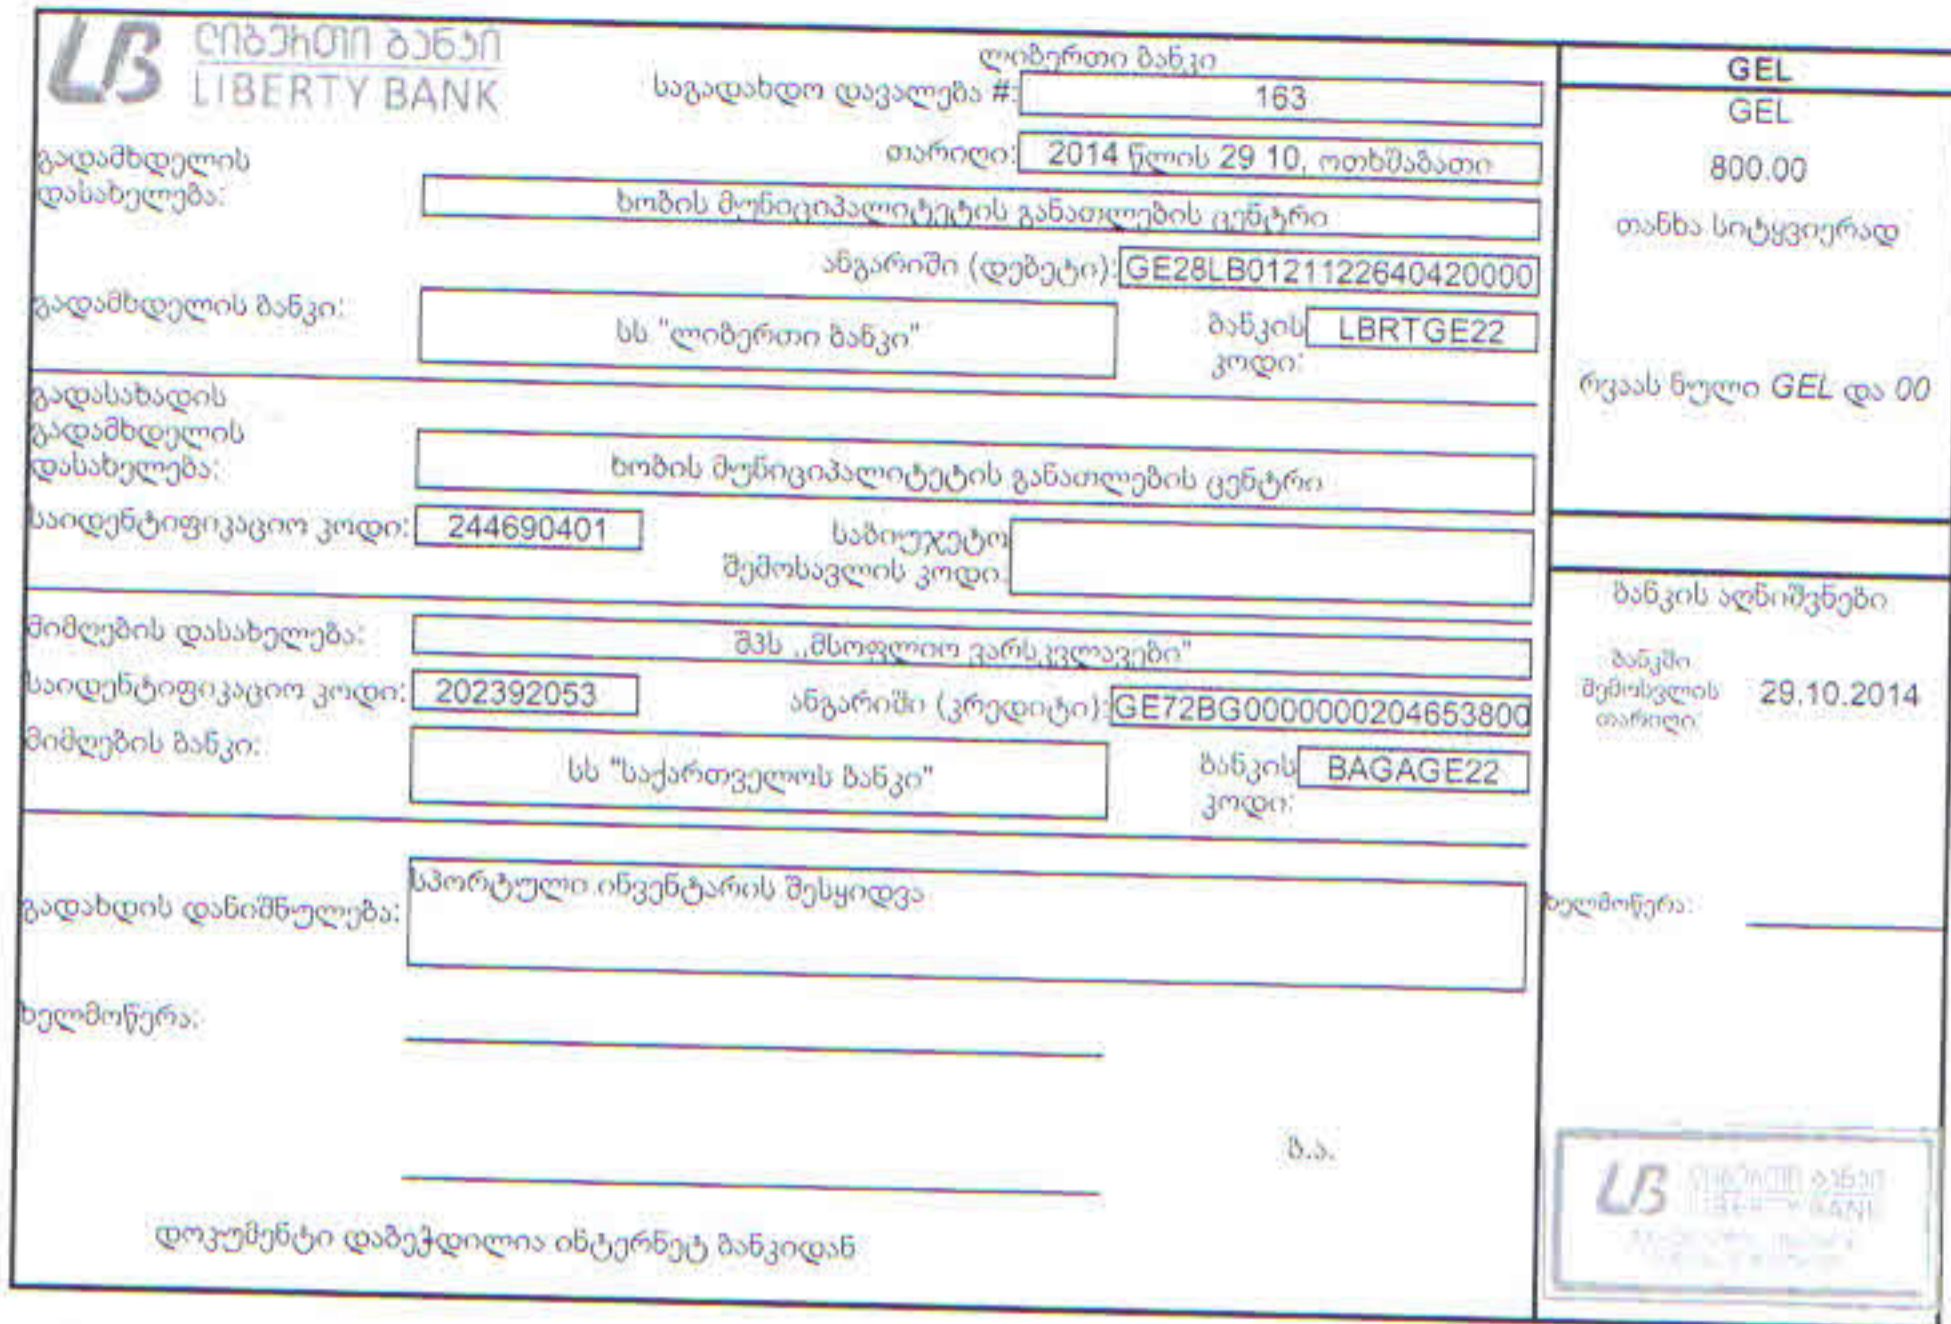 ლიბერთი ბანკი
LIBERTY BANK
ლიბერთი ბანკი
საგადახდო დავალება #: 163
თარიღი: 2014 წლის 29 10, ოთხშაბათი
გადამხდელის
დასახელება: ხობის მუნიციპალიტეტის განათლების ცენტრი
ანგარიში (დებეტი): GE28LB0121122640420000
გადამხდელის ბანკი: სს "ლიბერთი ბანკი" ბანკის კოდი: LBRTGE22
გადასახადის
გადამხდელის
დასახელება: ხობის მუნიციპალიტეტის განათლების ცენტრი
საიდენტიფიკაციო კოდი: 244690401 საბიუჯეტო
შემოსავლის კოდი
მიმღების დასახელება: შპს ,,მსოფლიო ვარსკვლავები"
საიდენტიფიკაციო კოდი: 202392053 ანგარიში (კრედიტი): GE72BG0000000204653800
მიმღების ბანკი: სს "საქართველოს ბანკი" ბანკის კოდი: BAGAGE22
გადახდის დანიშნულება: სპორტული ინვენტარის შესყიდვა
ხელმოწერა:
ბ.ა.
დოკუმენტი დაბეჭდილია ინტერნეტ ბანკიდან
GEL
GEL
800.00
თანხა სიტყვიერად
რვაას ნული GEL და 00
ბანკის აღნიშვნები
ბანკში
შემოსვლის 29.10.2014
თარიღი:
ხელმოწერა:
LB ლიბერთი ბანკი
LIBERTY BANK